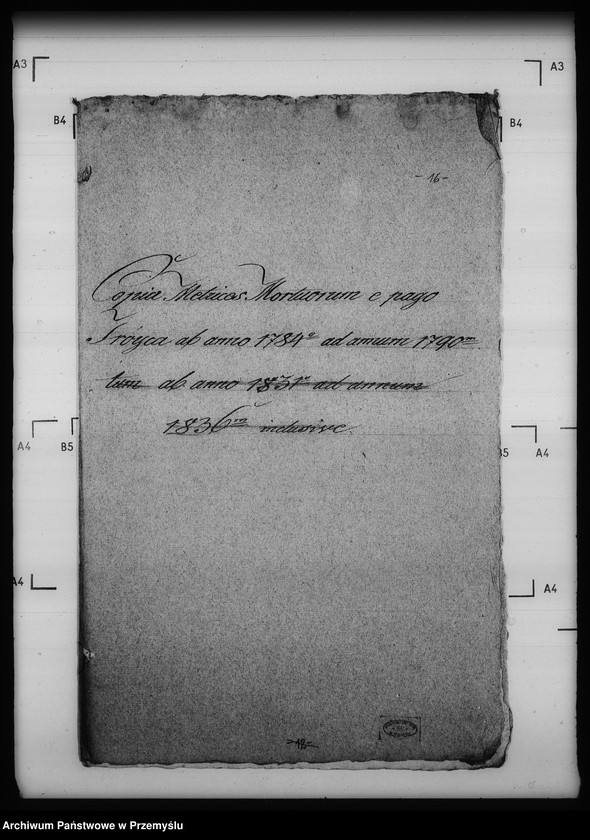 A3
A3
B4
B4
- 16 -
Copia Metrices Mortuorum e pago
Trόyca ab anno 1784º ad annum 1790m
tum ab anno 1831º ad annum
1836m inclusive.
A4
B5
B5
A4
A4
A4
Archiwum Państwowe w Przemyślu